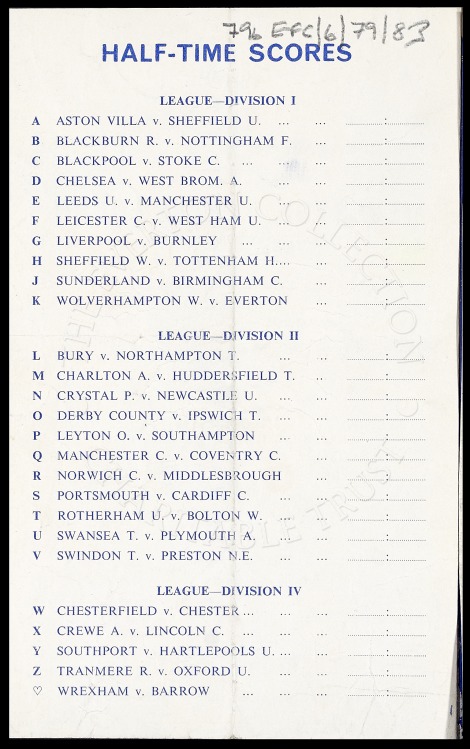 796 EFC/6/79/83
HALF-TIME SCORES
LEAGUE—DIVISION I
A ASTON VILLA v. SHEFFIELD U. ... ... ............:............
B BLACKBURN R. v. NOTTINGHAM F. ... ............:............
C BLACKPOOL v. STOKE C. ... ... ... ............:............
D CHELSEA v. WEST BROM. A. ... ... ............:............
E LEEDS U. v. MANCHESTER U. ... ... ............:............
F LEICESTER C. v. WEST HAM U. ... ... ............:............
G LIVERPOOL v. BURNLEY ... ... ... ............:............
H SHEFFIELD W. v. TOTTENHAM H.... ... ............:............
J SUNDERLAND v. BIRMINGHAM C. ... ............:............
K WOLVERHAMPTON W. v. EVERTON ... ............:............
LEAGUE—DIVISION II
L BURY v. NORTHAMPTON T. ... ... ............:............
M CHARLTON A. v. HUDDERSFIELD T. .. ............:............
N CRYSTAL P. v. NEWCASTLE U. ... ... ............:............
O DERBY COUNTY v. IPSWICH T. ... ... ............:............
P LEYTON O. v. SOUTHAMPTON ... ... ............:............
Q MANCHESTER C. v. COVENTRY C. ... ............:............
R NORWICH C. v. MIDDLESBROUGH ... ............:............
S PORTSMOUTH v. CARDIFF C. ... ... ............:............
T ROTHERHAM U. v. BOLTON W. ... ... ............:............
U SWANSEA T. v. PLYMOUTH A. ... ... ............:............
V SWINDON T. v. PRESTON N.E. ... ... ............:............
LEAGUE—DIVISION IV
W CHESTERFIELD v. CHESTER ... ... ... ............:............
X CREWE A. v. LINCOLN C. ... ... ... ............:............
Y SOUTHPORT v. HARTLEPOOLS U. ... ... ............:............
Z TRANMERE R. v. OXFORD U. ... ... ............:............
♡ WREXHAM v. BARROW ... ... ... ............:............